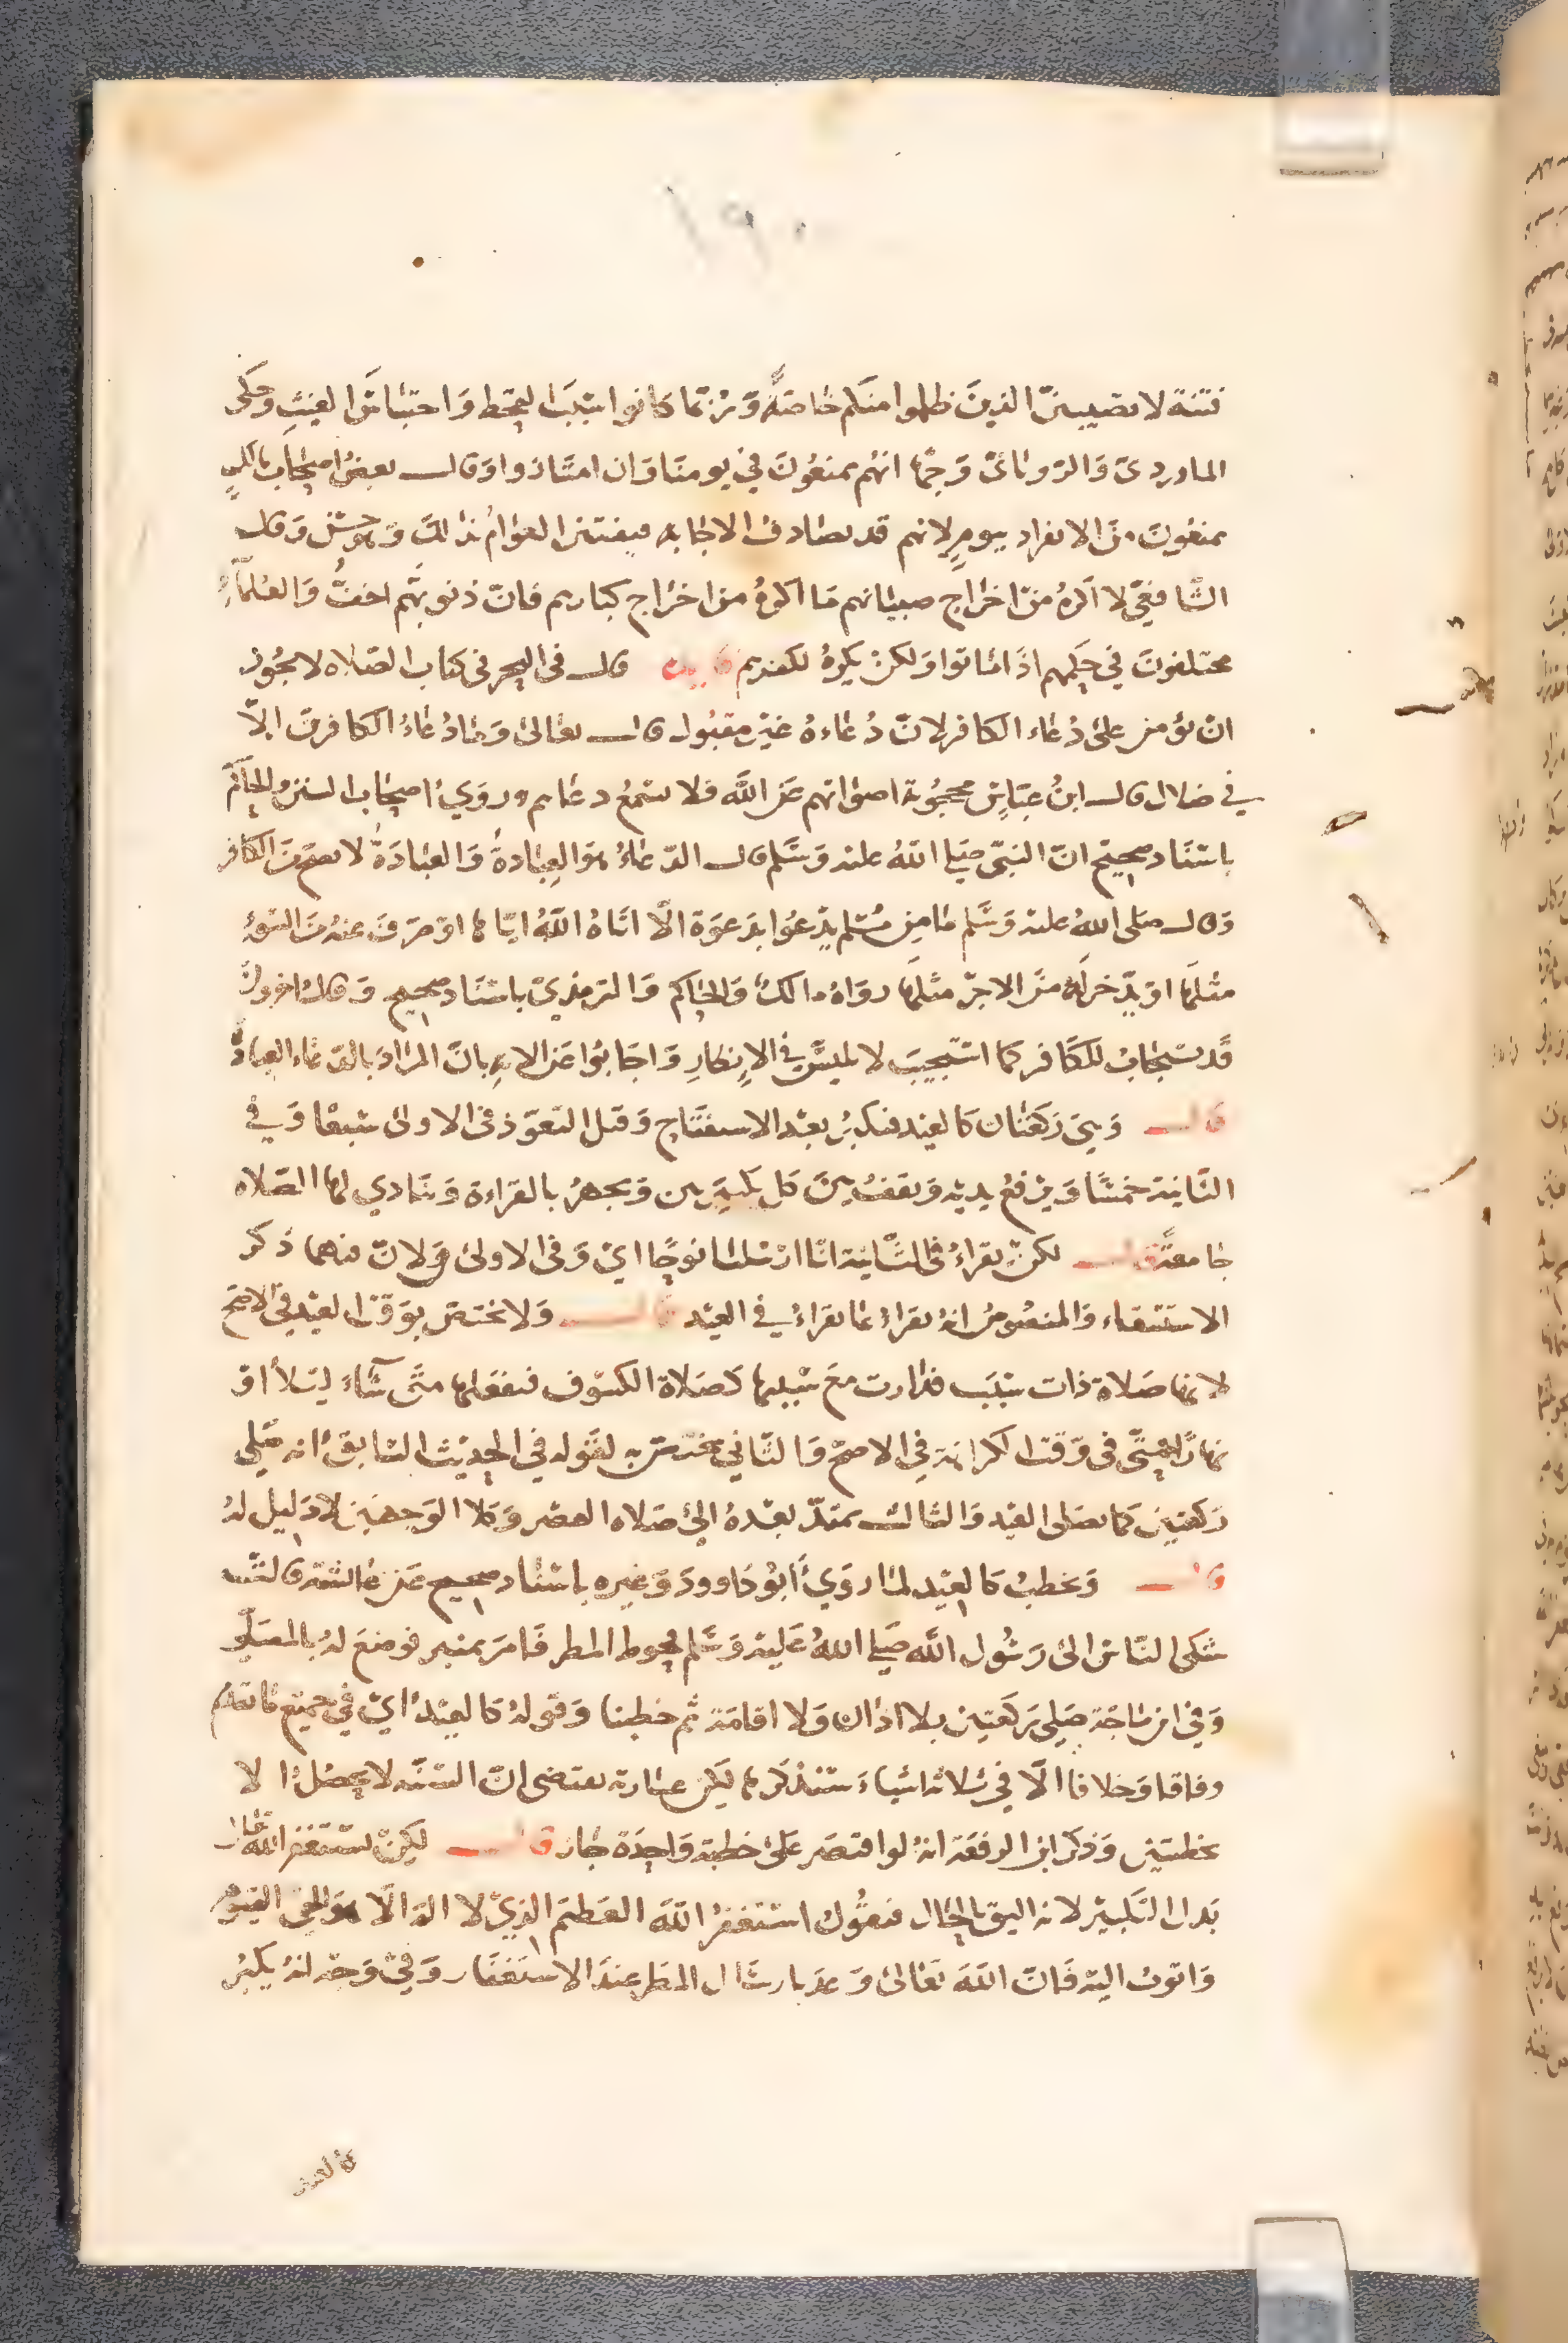 ١٩٠
فتنة لا تصيبنّ الذينَ ظلموا منكم خاصّةً وَرُبّما كانوا سَبَبَ القحط وَاحتباسَ الغيثِ وحَكى
الماورديّ وَالرّويانيّ وَجهًا انهُم يمنعُونَ في يومنَا وَان امتَازوا وَقال بعضُ اصحَابنا اليهم
يمنعُونَ منَ الانفراد بيومٍ لانهم قد يصَادفُ الاجَابة فيفتتن العوَامُ بذالكَ وَهو حسَن وَقال
الشّافعيّ لا اكرهُ منْ اخرَاج صبيَانهم مَا اكرهُ من اخرَاج كبارهم فانّ ذنوبهُم اخفُّ وَالعُلمآءُ
مختلفونَ في حكمهم اذَا مَاتوا وَلكنْ يكرهُ لكفرهم قال في البحر في كتاب الصّلاه لا يجُوز
انْ يؤمن علىَ دُعَاء الكافر لانّ دُعَاءهُ غيرُ مقبُول قال تعَالىَ وَمَا دُعَاءُ الكافرينَ الاّ
في ضلال قال ابنُ عبّاسٍ محجُوبة اصوَاتهم عَن اللَّه فلا يسْمعُ دعَاهم وروَيَ اصحَاب السّنن وَالحَاكم
باسْنَاد صحيح انّ النبيّ صَلى اللّهُ عليْه وَسَلم قال الدّعَاءُ هوَ العِبَادةُ وَالعبَادَةُ لا تصحّ منَ الكافر
وَقال صَلى اللَّهُ عليْه وَسَلم مَا مِن مُسْلم يدْعُوا بدَعوَة الّا اتَاهُ اللَّهُ ايّاهَا اوْ صَرفَ عنهُ منَ السّوءِ
مثلهَا اوْ يدّخر لهُ منَ الاجرْ مثلَهَا روَاهُ مالكٌ وَالحَاكم وَالترمذيّ باسْنَاد صحيح وَقال اخرونَ
قَد يسْتجَابُ للكَافر كما اسْتجيبَ لابليسَ في الإنظارِ وَاجَابوا عَن الايةِ بانّ المرَادَ بالدّعَاء العبادة
قال وَهيَ رَكعَتان كالعيْد فيكبرُ بعْد الاسْتفتَاح وَقبل التعَوّذ في الاولى سَبعًا وَفي
الثّانية خمسًا وَيرْفعُ يديْه وَيقفُ بينَ كل تكبيرَتين وَيجهرُ بالقرَاءة وَينَادي لهَا الصّلاه
جَامعَةً قال لكنْ يقرَاءُ في الثّانية انّا ارْسَلنا نوحًا ايْ وَفي الاولى ق وَلانّ فيهما ذكر
الاستسْقاء وَالمنصُوصُ انهُ يقرَاءُ مَا يقرَاءُ في العيْد قال وَلا تختَصّ بوَقت العيْد في الاصَح
لانها صَلاة ذات سَبَب فدَارت معَ سَببها كصَلاة الكسُوف فيفعَلهَا متَى شَآءَ ليْلاً اوْ
نهَارًا حتّى في وَقت الكرَاهَة في الاصحّ وَالثّاني تختصّ به لقَوله في الحَديث السّابق انه صَلى
رَكعتين كما يصَلى العيْد وَالثالث تمتدّ بعْدهُ الىَ صَلاه العصْر وَكلا الوَجهيْن لا دَليل لهُ
قال وَيخطبُ كالعيْد لمَا روَيَ أبُو دَاوودَ وَغيره باسْنَاد صحيح عَن عَائشة قالت
شكى النّاسُ الىَ رَسُول اللَّه صَلى اللهُ عَليْه وَسَلم قحوط المطر فَامرَ بمنبر فوضعَ لهُ بالمصَلى
وَفي ابن مَاجَة صَلى رَكعَتين بلا اذان وَلا اقامَة ثم خطبنا وَقولهُ كالعيْد ايْ في جميْع مَا تقدّم
وفاقا وَخلافا الّا في ثلاثة اشيَاءَ سَنذكرهَا لكن عبَارته تقتضي انّ السّنّة لا تحصُلُ الا
بخطبتين وَذكر ابن الرفعَة انهُ لو اقتصَر عَلى خطبَة وَاحِدَة جَاز قال لكِنْ يسْتَغفر اللَّه تعَالى
بَدل التّكبير لانه اليق بالحَال فيقُول اسْتغفرُ اللَّهَ العَظيمَ الذِيْ لا الهَ الّا هوَ الحي القيّوم
وَاتوبُ اليْه فَانّ اللَّهَ تَعَالىَ وَعدَ بارسَال المَطر عندَ الاسْتغفَار وَفيْ وَجْه انهُ يكبّرُ
كالعيد